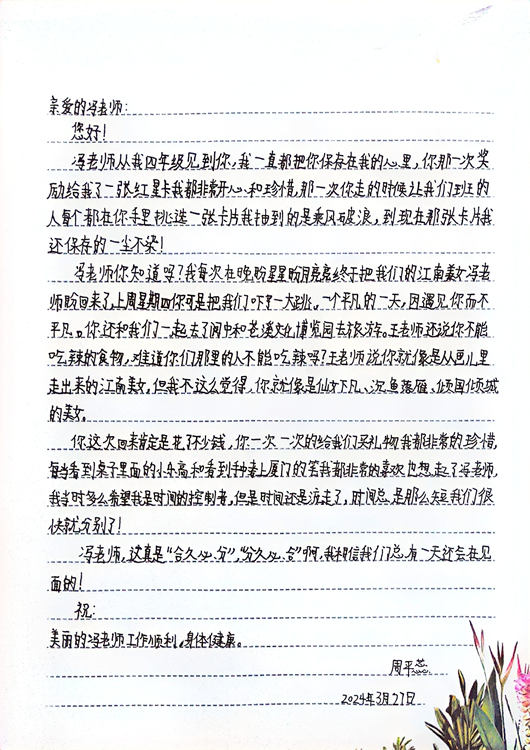 亲爱的冯老师:
您好!
冯老师从我四年级见到你,我一直都把你保存在我的心里,你那一次奖
励给我了一张红星卡我都非常开心和珍惜,那一次你走的时候让我们班的
人每个都在你手里挑选一张卡片我抽到的是乘风破浪,到现在那张卡片我
还保存的一尘不染!
冯老师你知道吗?我每次在晚盼星星盼月亮亮终于把我们的江南美女冯老
师盼回来了,上周星期四你可是把我们吓了一大跳。一个平凡的一天,因遇见你而不
平凡。你还和我们一起去了阆中和苍溪文化博览园去旅游。王老师还说你不能
吃辣的食物,难道你们那里的人不能吃辣吗?王老师说你就像是从画儿里
走出来的江南美女,但我不这么觉得,你就像是仙女下凡、沉鱼落雁、倾国倾城
的美女。
你这次回来肯定是花了不少钱,你一次一次的给我们买礼物我都非常的珍惜,
每当看到桌子里面的小车高和看到手上厦门的笔我都非常的喜欢也想起了冯老师,
我当时多么希望我是时间的控制者,但是时间还是流走了,时间总是那么短我们很
快就分别了!
冯老师,这真是“合久必分”,“分久必合”啊,我相信我们总有一天还会在见
面的!
祝:
美丽的冯老师工作顺利,身体健康。
周平蕊
2024年3月27日